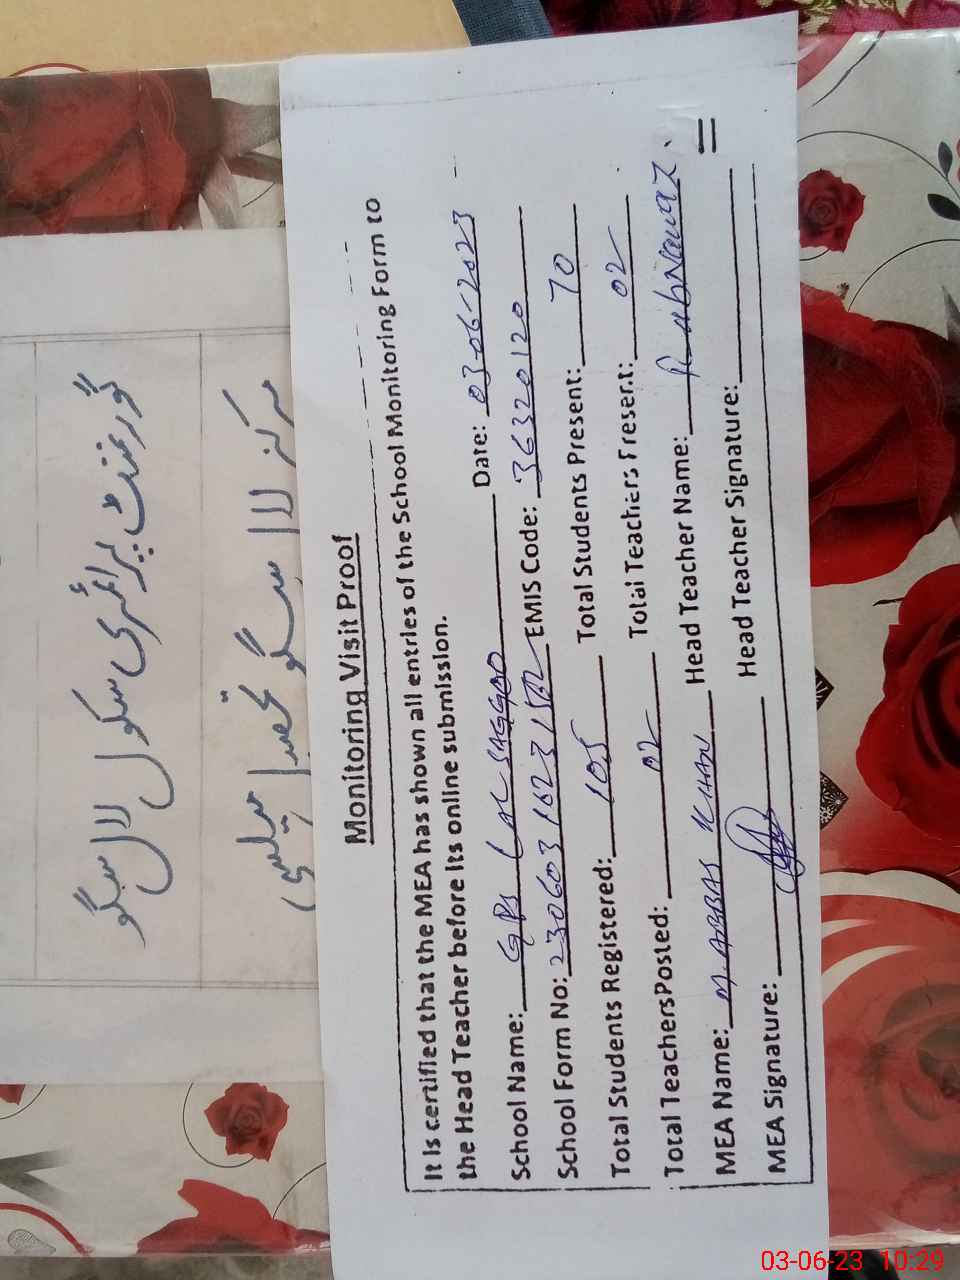 گورنمنٹ پرائمری سکول لال سگو
مرکز لال سگو تحصیل میلسی
Monitoring Visit Proof
It is certified that the MEA has shown all entries of the School Monitoring Form to
the Head Teacher before its online submission.
School Name: GPS LAL SAGGOO Date: 03-06-2023
School Form No: EMIS Code: 36320120
Total Students Registered: 105 Total Students Present: 70
Total Teachers Posted: 02 Total Teachers Present: 02
MEA Name: M. ABBAS KHAN Head Teacher Name: Rabnawaz
MEA Signature: Head Teacher Signature:
03-06-23 10:29